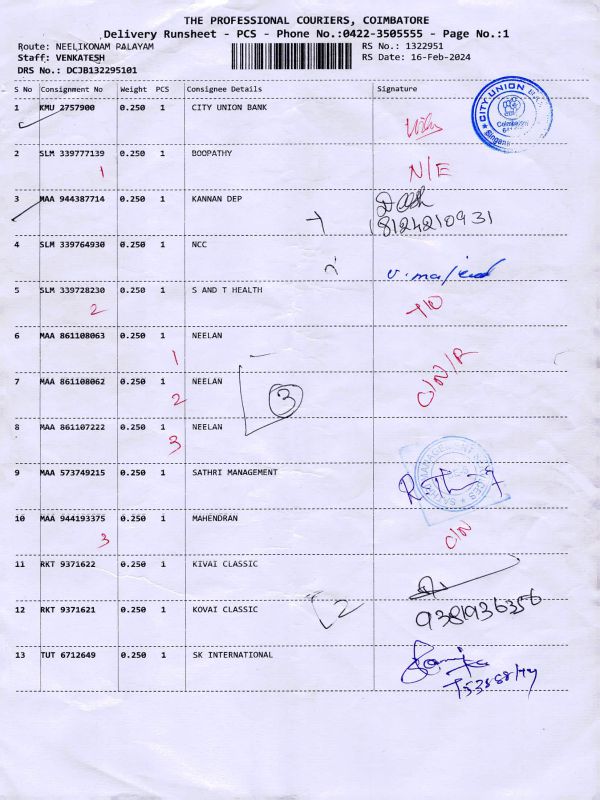 THE PROFESSIONAL COURIERS, COIMBATORE
Delivery Runsheet - PCS - Phone No.:0422-3505555 - Page No.:1
Route: NEELIKONAM PALAYAM RS No.: 1322951
Staff: VENKATESH RS Date: 16-Feb-2024
DRS No.: DCJB132295101
S No Consignment No Weight PCS Consignee Details Signature
1 KMU 2757900 0.250 1 CITY UNION BANK
CITY UNION
Coimbatore
2 SLM 339777139 0.250 1 BOOPATHY N/E
1
3 MAA 944387714 0.250 1 KANNAN DEP
8124210931
4 SLM 339764930 0.250 1 NCC
5 SLM 339728230 0.250 1 S AND T HEALTH
2
6 MAA 861108063 0.250 1 NEELAN
1
7 MAA 861108062 0.250 1 NEELAN 3 C/N/R
2
8 MAA 861107222 0.250 1 NEELAN
3
9 MAA 573749215 0.250 1 SATHRI MANAGEMENT
10 MAA 944193375 0.250 1 MAHENDRAN C/N
3
11 RKT 9371622 0.250 1 KIVAI CLASSIC
12 RKT 9371621 0.250 1 KOVAI CLASSIC 2 9381936356
13 TUT 6712649 0.250 1 SK INTERNATIONAL